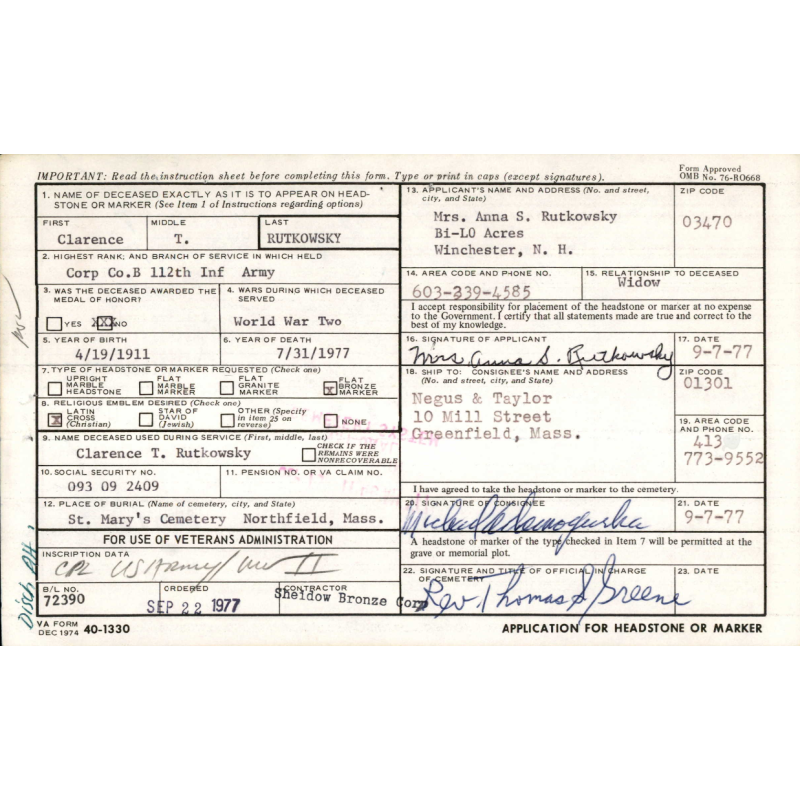 IMPORTANT: Read the instruction sheet before completing this form. Type or print in caps (except signatures).
Form Approved
OMB No. 76-RO668
1. NAME OF DECEASED EXACTLY AS IT IS TO APPEAR ON HEAD-
STONE OR MARKER (See Item 1 of Instructions regarding options)
FIRST MIDDLE LAST
Clarence T. RUTKOWSKY
2. HIGHEST RANK; AND BRANCH OF SERVICE IN WHICH HELD
Corp Co.B 112th Inf Army
3. WAS THE DECEASED AWARDED THE
MEDAL OF HONOR?
YES XXX NO
4. WARS DURING WHICH DECEASED
SERVED
World War Two
5. YEAR OF BIRTH
4/19/1911
6. YEAR OF DEATH
7/31/1977
7. TYPE OF HEADSTONE OR MARKER REQUESTED (Check one)
UPRIGHT
MARBLE
HEADSTONE
FLAT
MARBLE
MARKER
FLAT
GRANITE
MARKER
X FLAT
BRONZE
MARKER
8. RELIGIOUS EMBLEM DESIRED (Check one)
X LATIN
CROSS
(Christian)
STAR OF
DAVID
(Jewish)
OTHER (Specify
in item 25 on
reverse)
NONE
9. NAME DECEASED USED DURING SERVICE (First, middle, last)
Clarence T. Rutkowsky
CHECK IF THE
REMAINS WERE
NONRECOVERABLE
10. SOCIAL SECURITY NO.
093 09 2409
11. PENSION NO. OR VA CLAIM NO.
12. PLACE OF BURIAL (Name of cemetery, city, and State)
St. Mary's Cemetery Northfield, Mass.
FOR USE OF VETERANS ADMINISTRATION
INSCRIPTION DATA
CPL US Army/ WW II
B/L NO.
72390
ORDERED
SEP 22 1977
CONTRACTOR
Sheldow Bronze Corp
VA FORM
DEC 1974 40-1330
13. APPLICANT'S NAME AND ADDRESS (No. and street,
city, and State)
Mrs. Anna S. Rutkowsky
Bi-LO Acres
Winchester, N. H.
ZIP CODE
03470
14. AREA CODE AND PHONE NO.
603-339-4585
15. RELATIONSHIP TO DECEASED
Widow
I accept responsibility for placement of the headstone or marker at no expense
to the Government. I certify that all statements made are true and correct to the
best of my knowledge.
16. SIGNATURE OF APPLICANT
Mrs Anna S. Rutkowsky
17. DATE
9-7-77
18. SHIP TO: CONSIGNEE'S NAME AND ADDRESS
(No. and street, city, and State)
Negus & Taylor
10 Mill Street
Greenfield, Mass.
ZIP CODE
01301
19. AREA CODE
AND PHONE NO.
413
773-9552
I have agreed to take the headstone or marker to the cemetery.
20. SIGNATURE OF CONSIGNEE
21. DATE
9-7-77
A headstone or marker of the type checked in Item 7 will be permitted at the
grave or memorial plot.
22. SIGNATURE AND TITLE OF OFFICIAL IN CHARGE
OF CEMETERY
Rev. Thomas S Greene
23. DATE
APPLICATION FOR HEADSTONE OR MARKER